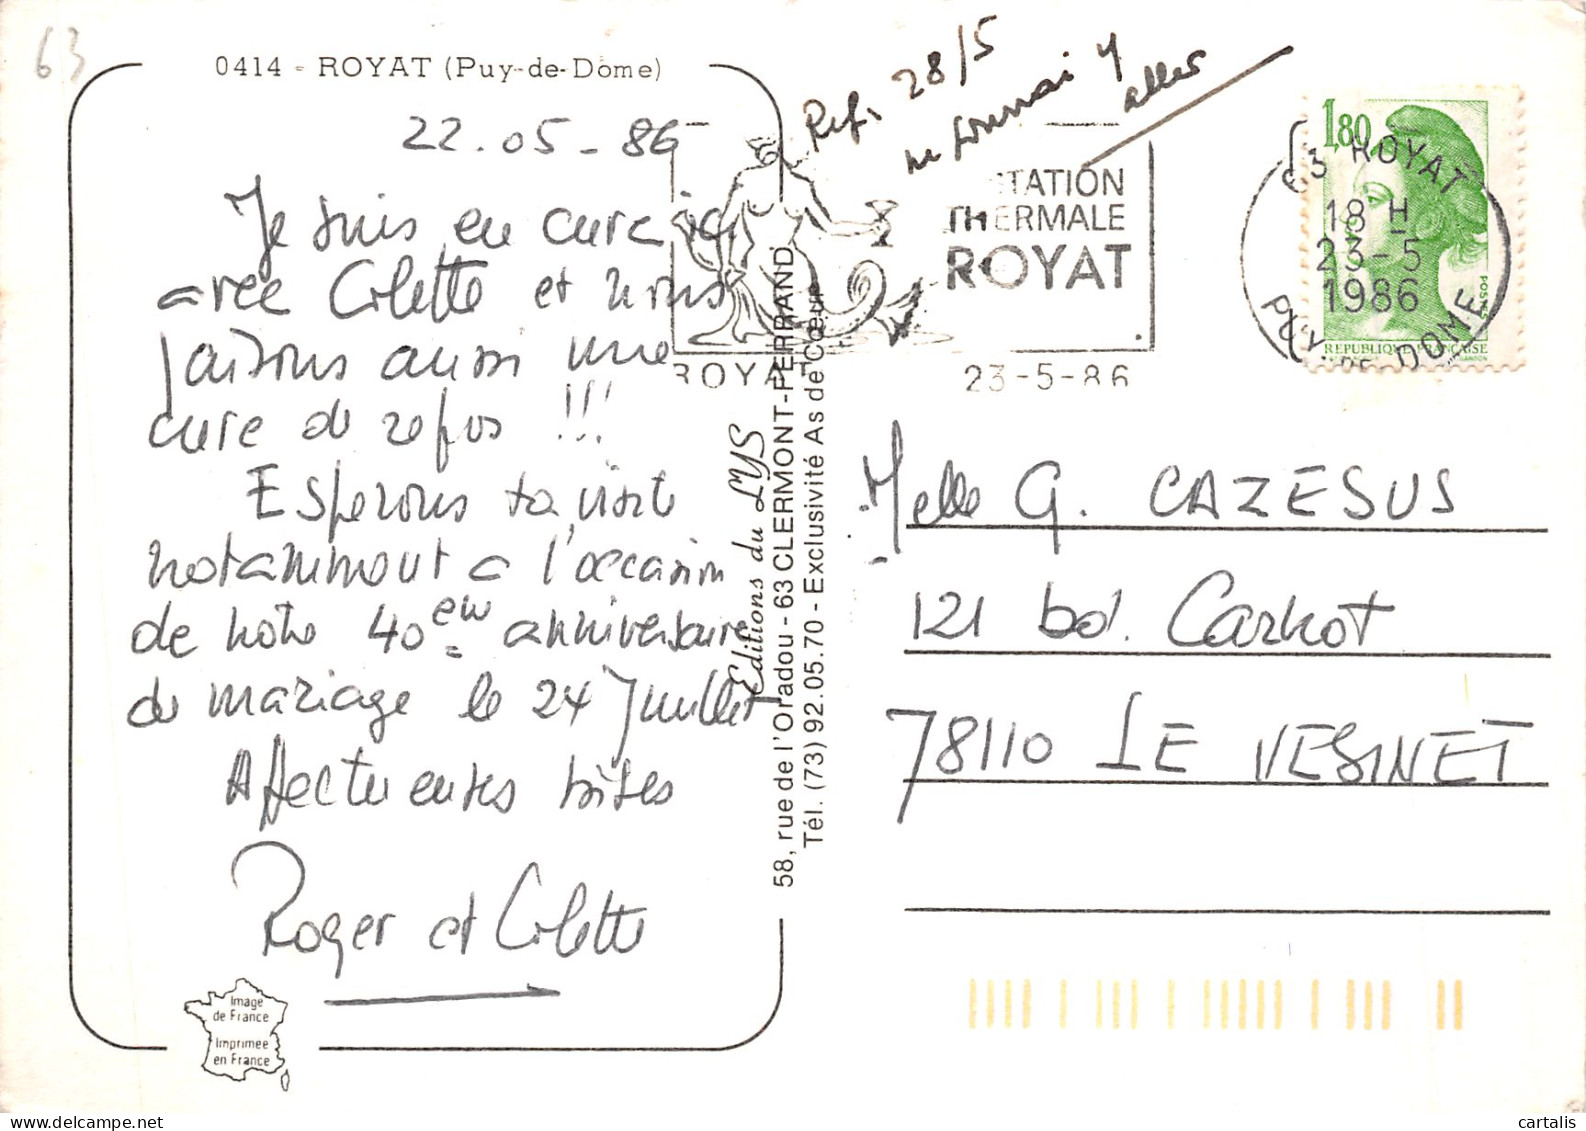 63
0414 - ROYAT (Puy-de-Dôme)
22.05-86
Je suis en cure ici
avec Colette et nous
faisons aussi une
cure de repos !!!
Esperons ta visite
notamment a l'occasion
de notre 40eme anniversaire
de mariage le 24 Juillet
Affectueuses bises
Roger et Colette
Image
de France
Imprimée
en France
Editions du LYS
58, rue de l'Oradou - 63 CLERMONT-FERRAND
Tél. (73) 92.05.70 - Exclusivité As de Cœur
Rep. 28/5
ne pourrai y
aller
STATION
THERMALE
ROYAT
ROYAT
23-5-86
1,80
63 ROYAT
18 H
23-5
1986
PUY-DE-DOME
POSTES
REPUBLIQUE FRANÇAISE
GANDON
Melle G. CAZESUS
121 bd. Carnot
78110 LE VESINET
cartalis